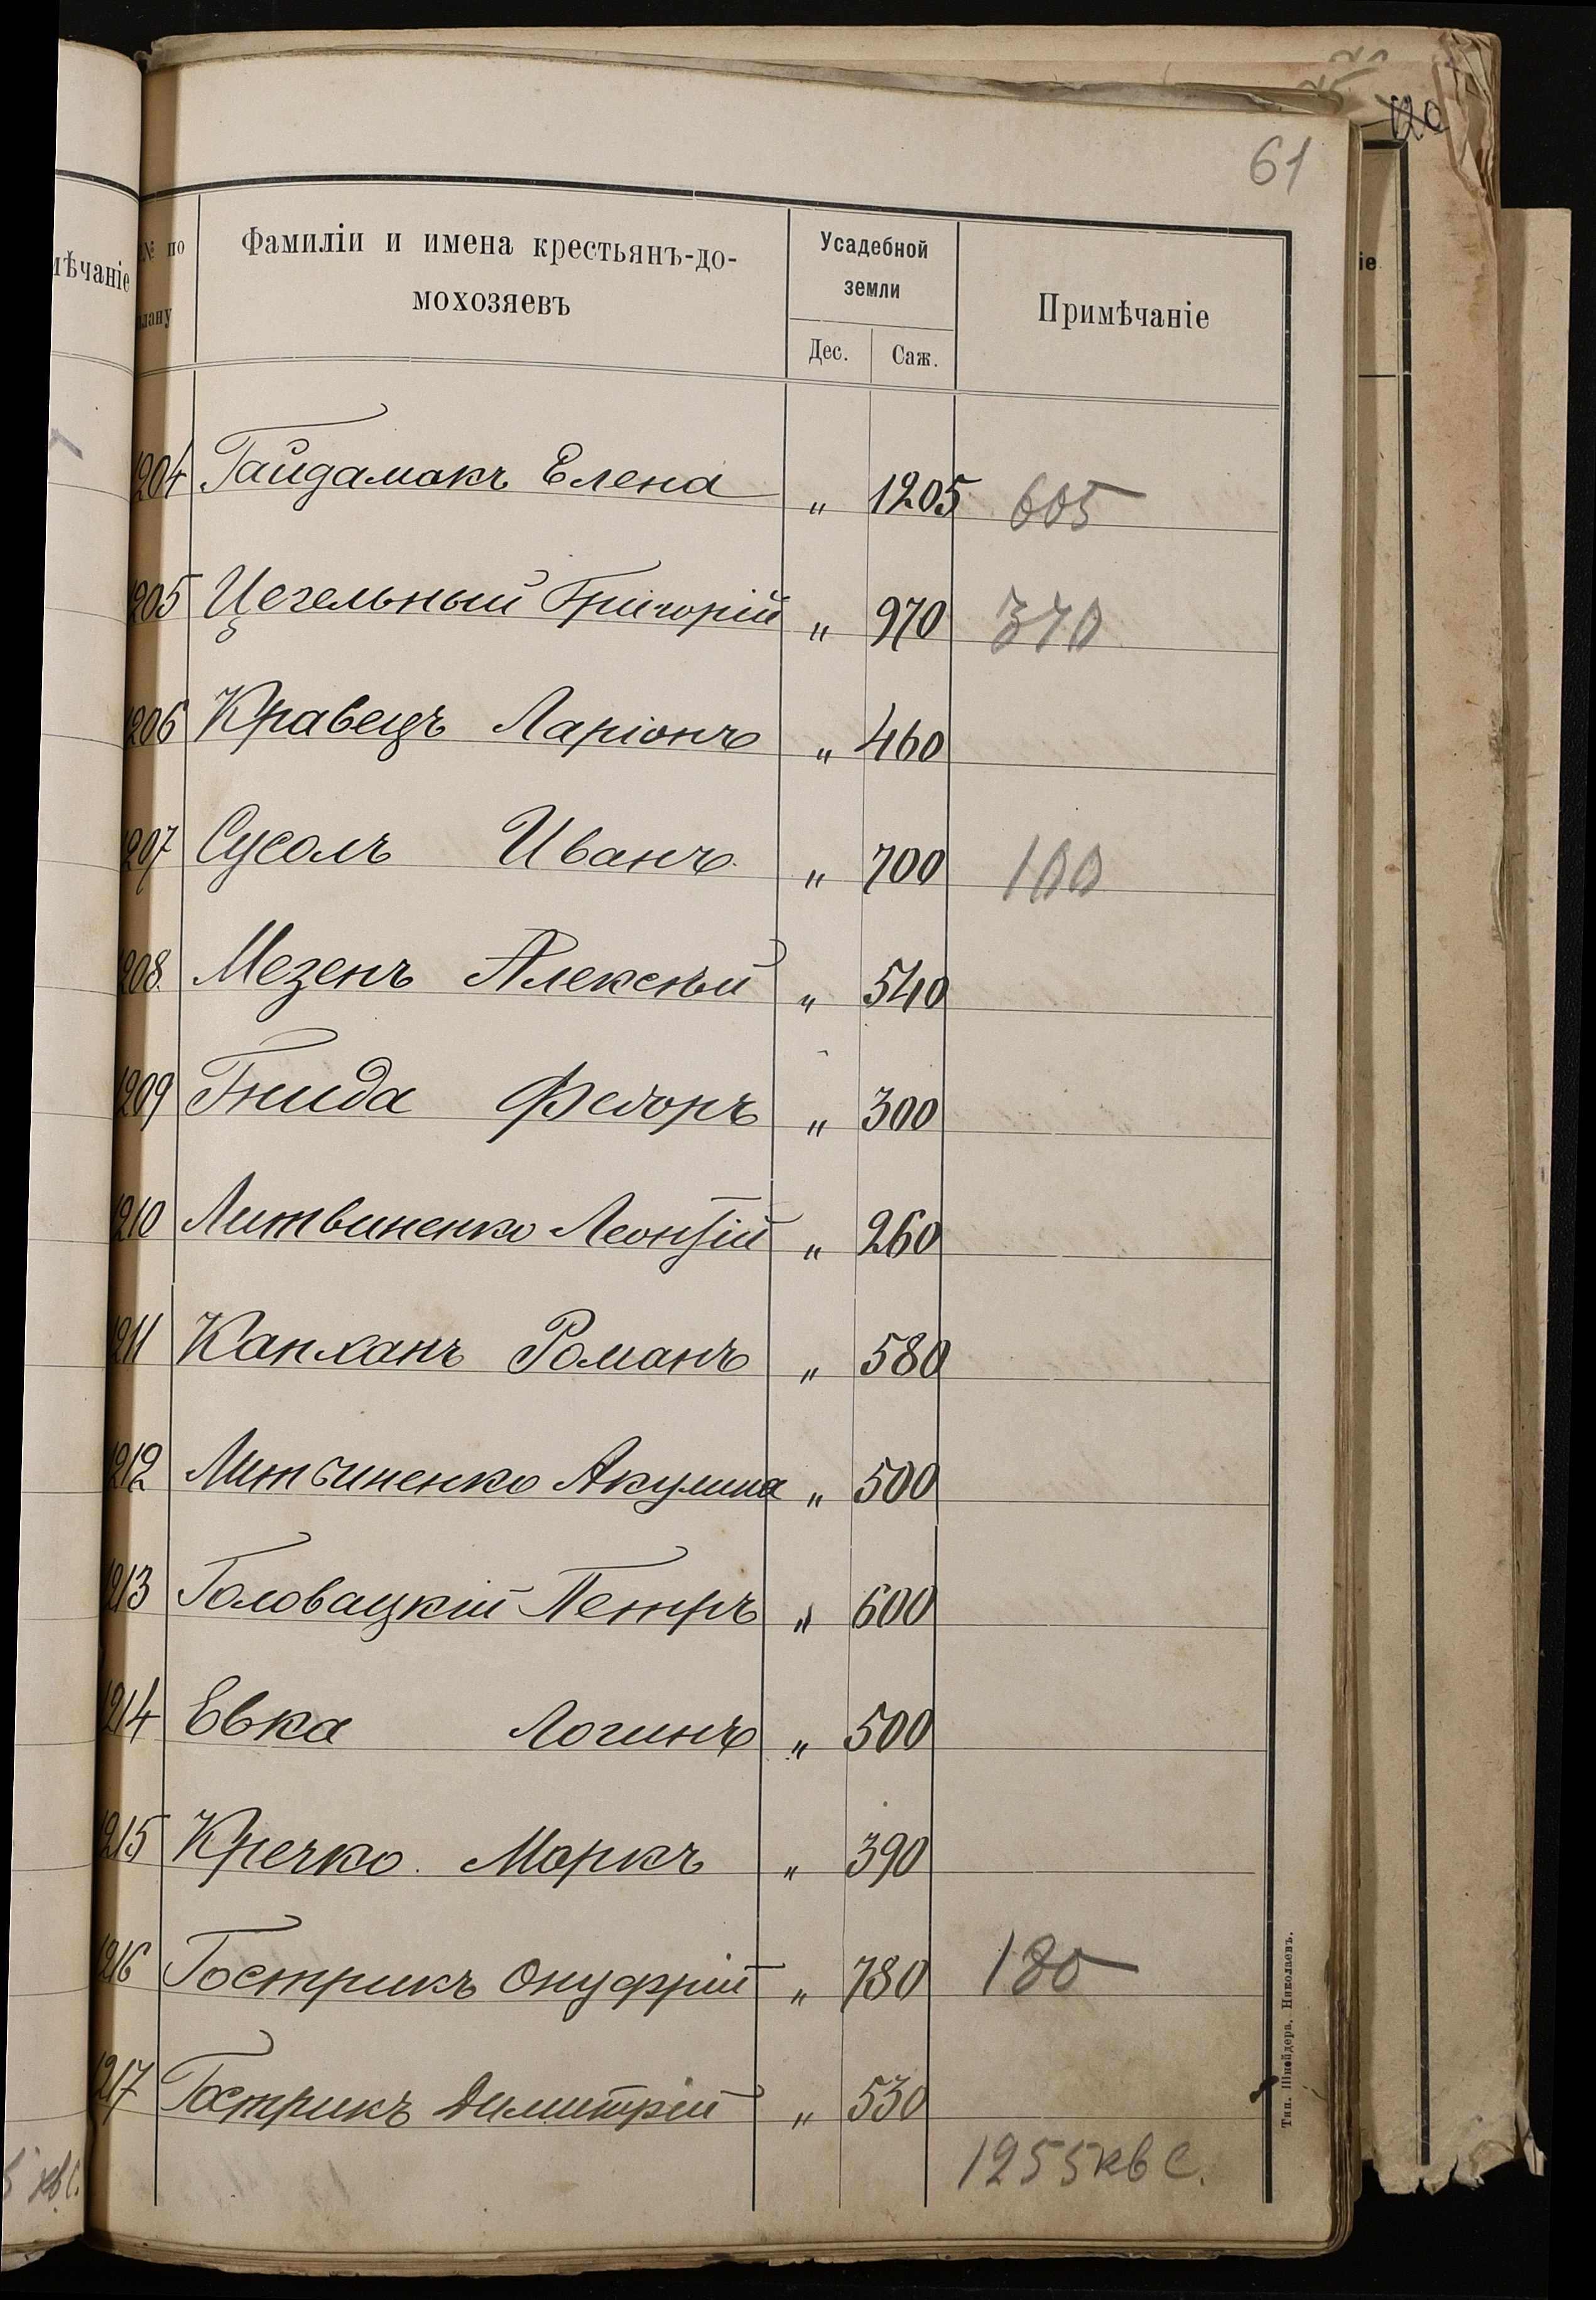 61
120
мѣчаніе
№ по
плану
Фамиліи и имена крестьянъ-до-
мохозяевъ
Усадебной
земли
Дес. Саж.
Примѣчаніе
іе
1204 Гайдамакъ Елена " 1205 605
1205 Цегельный Григорій " 970 370
1206 Кравецъ Ларіонъ " 460
1207 Сусолъ Иванъ " 700 100
1208 Мезенъ Алексѣй " 540
1209 Гнида Федоръ " 300
1210 Литвиненко Леонтій " 260
1211 Капканъ Романъ " 580
1212 Литвиненко Акулина " 500
1213 Головацкій Петръ " 600
1214 Евка Логинъ " 500
1215 Кречко Маркъ " 390
1216 Гострикъ Онуфрій " 780 180
1217 Гострикъ Димитрій " 530
1255 кв с.
кв с.
Тип. Шнейдера, Николаевъ.